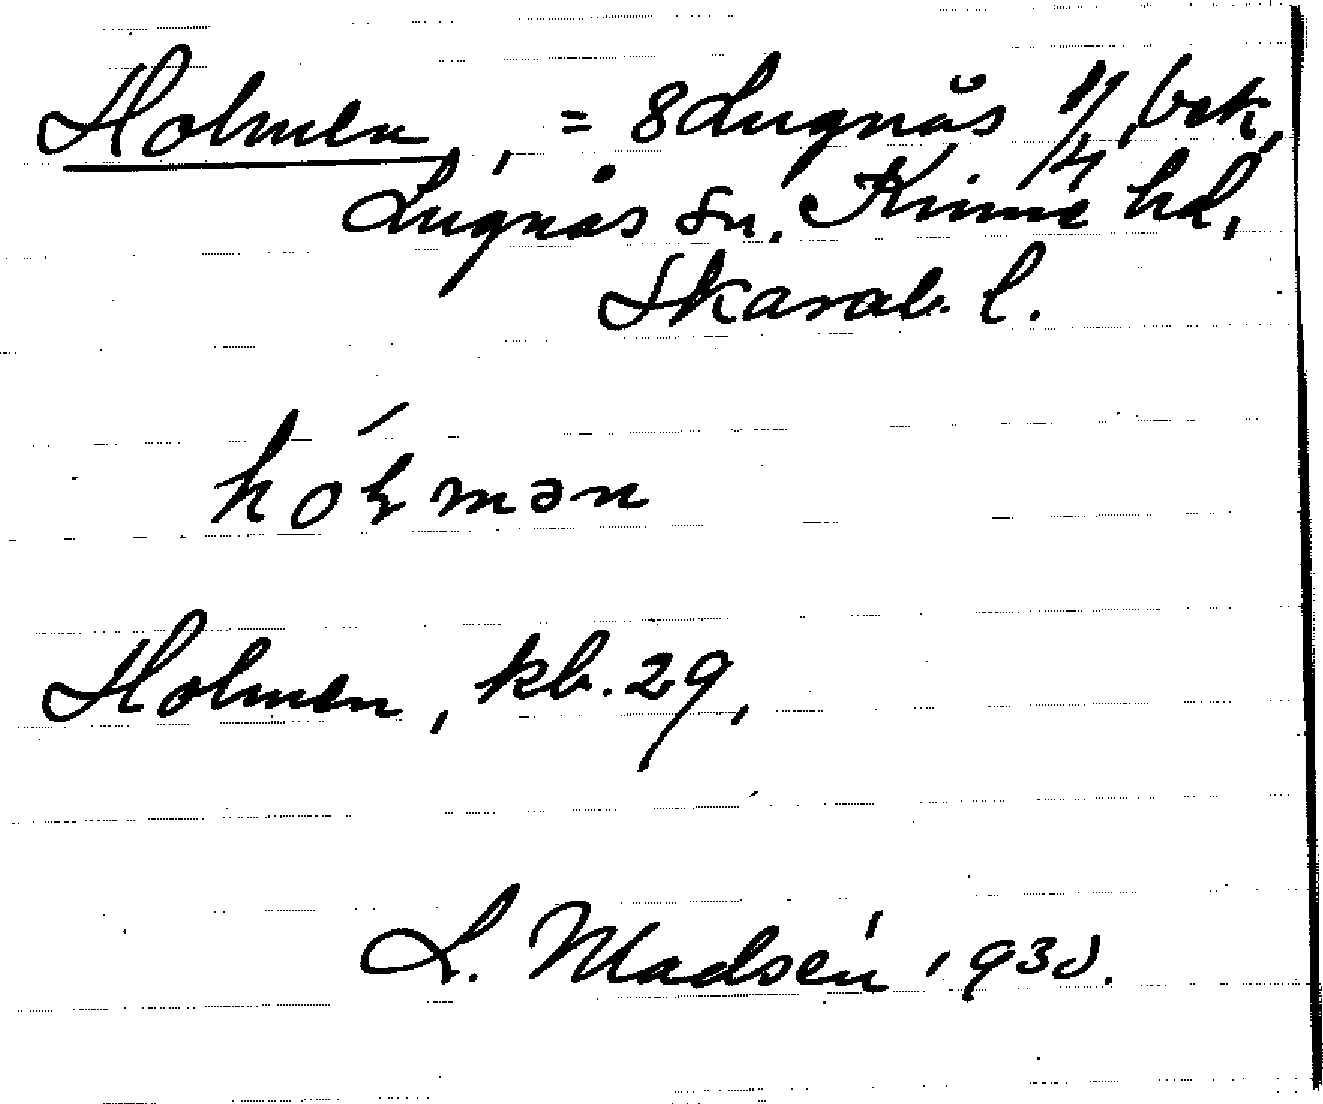 Holmen, = 8 Lugnås 1/4, bek,
Lugnås sn. Kinne hd,
Skarab. l.
Holmen, kb. 29,
L. Madsén 1930.